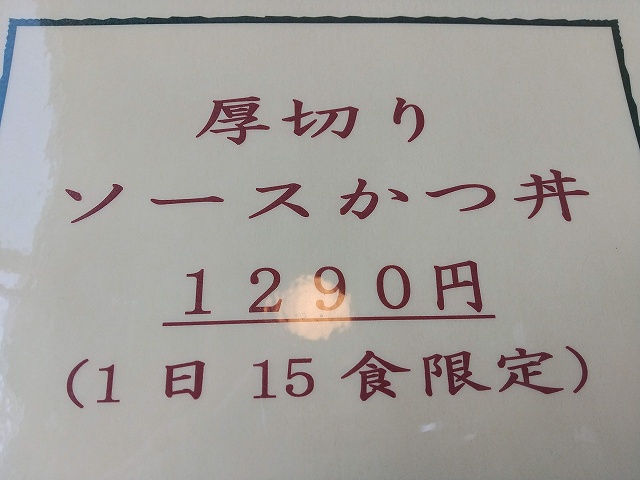 厚切り
ソースかつ丼
１２９０円
(1 日 15 食限定)